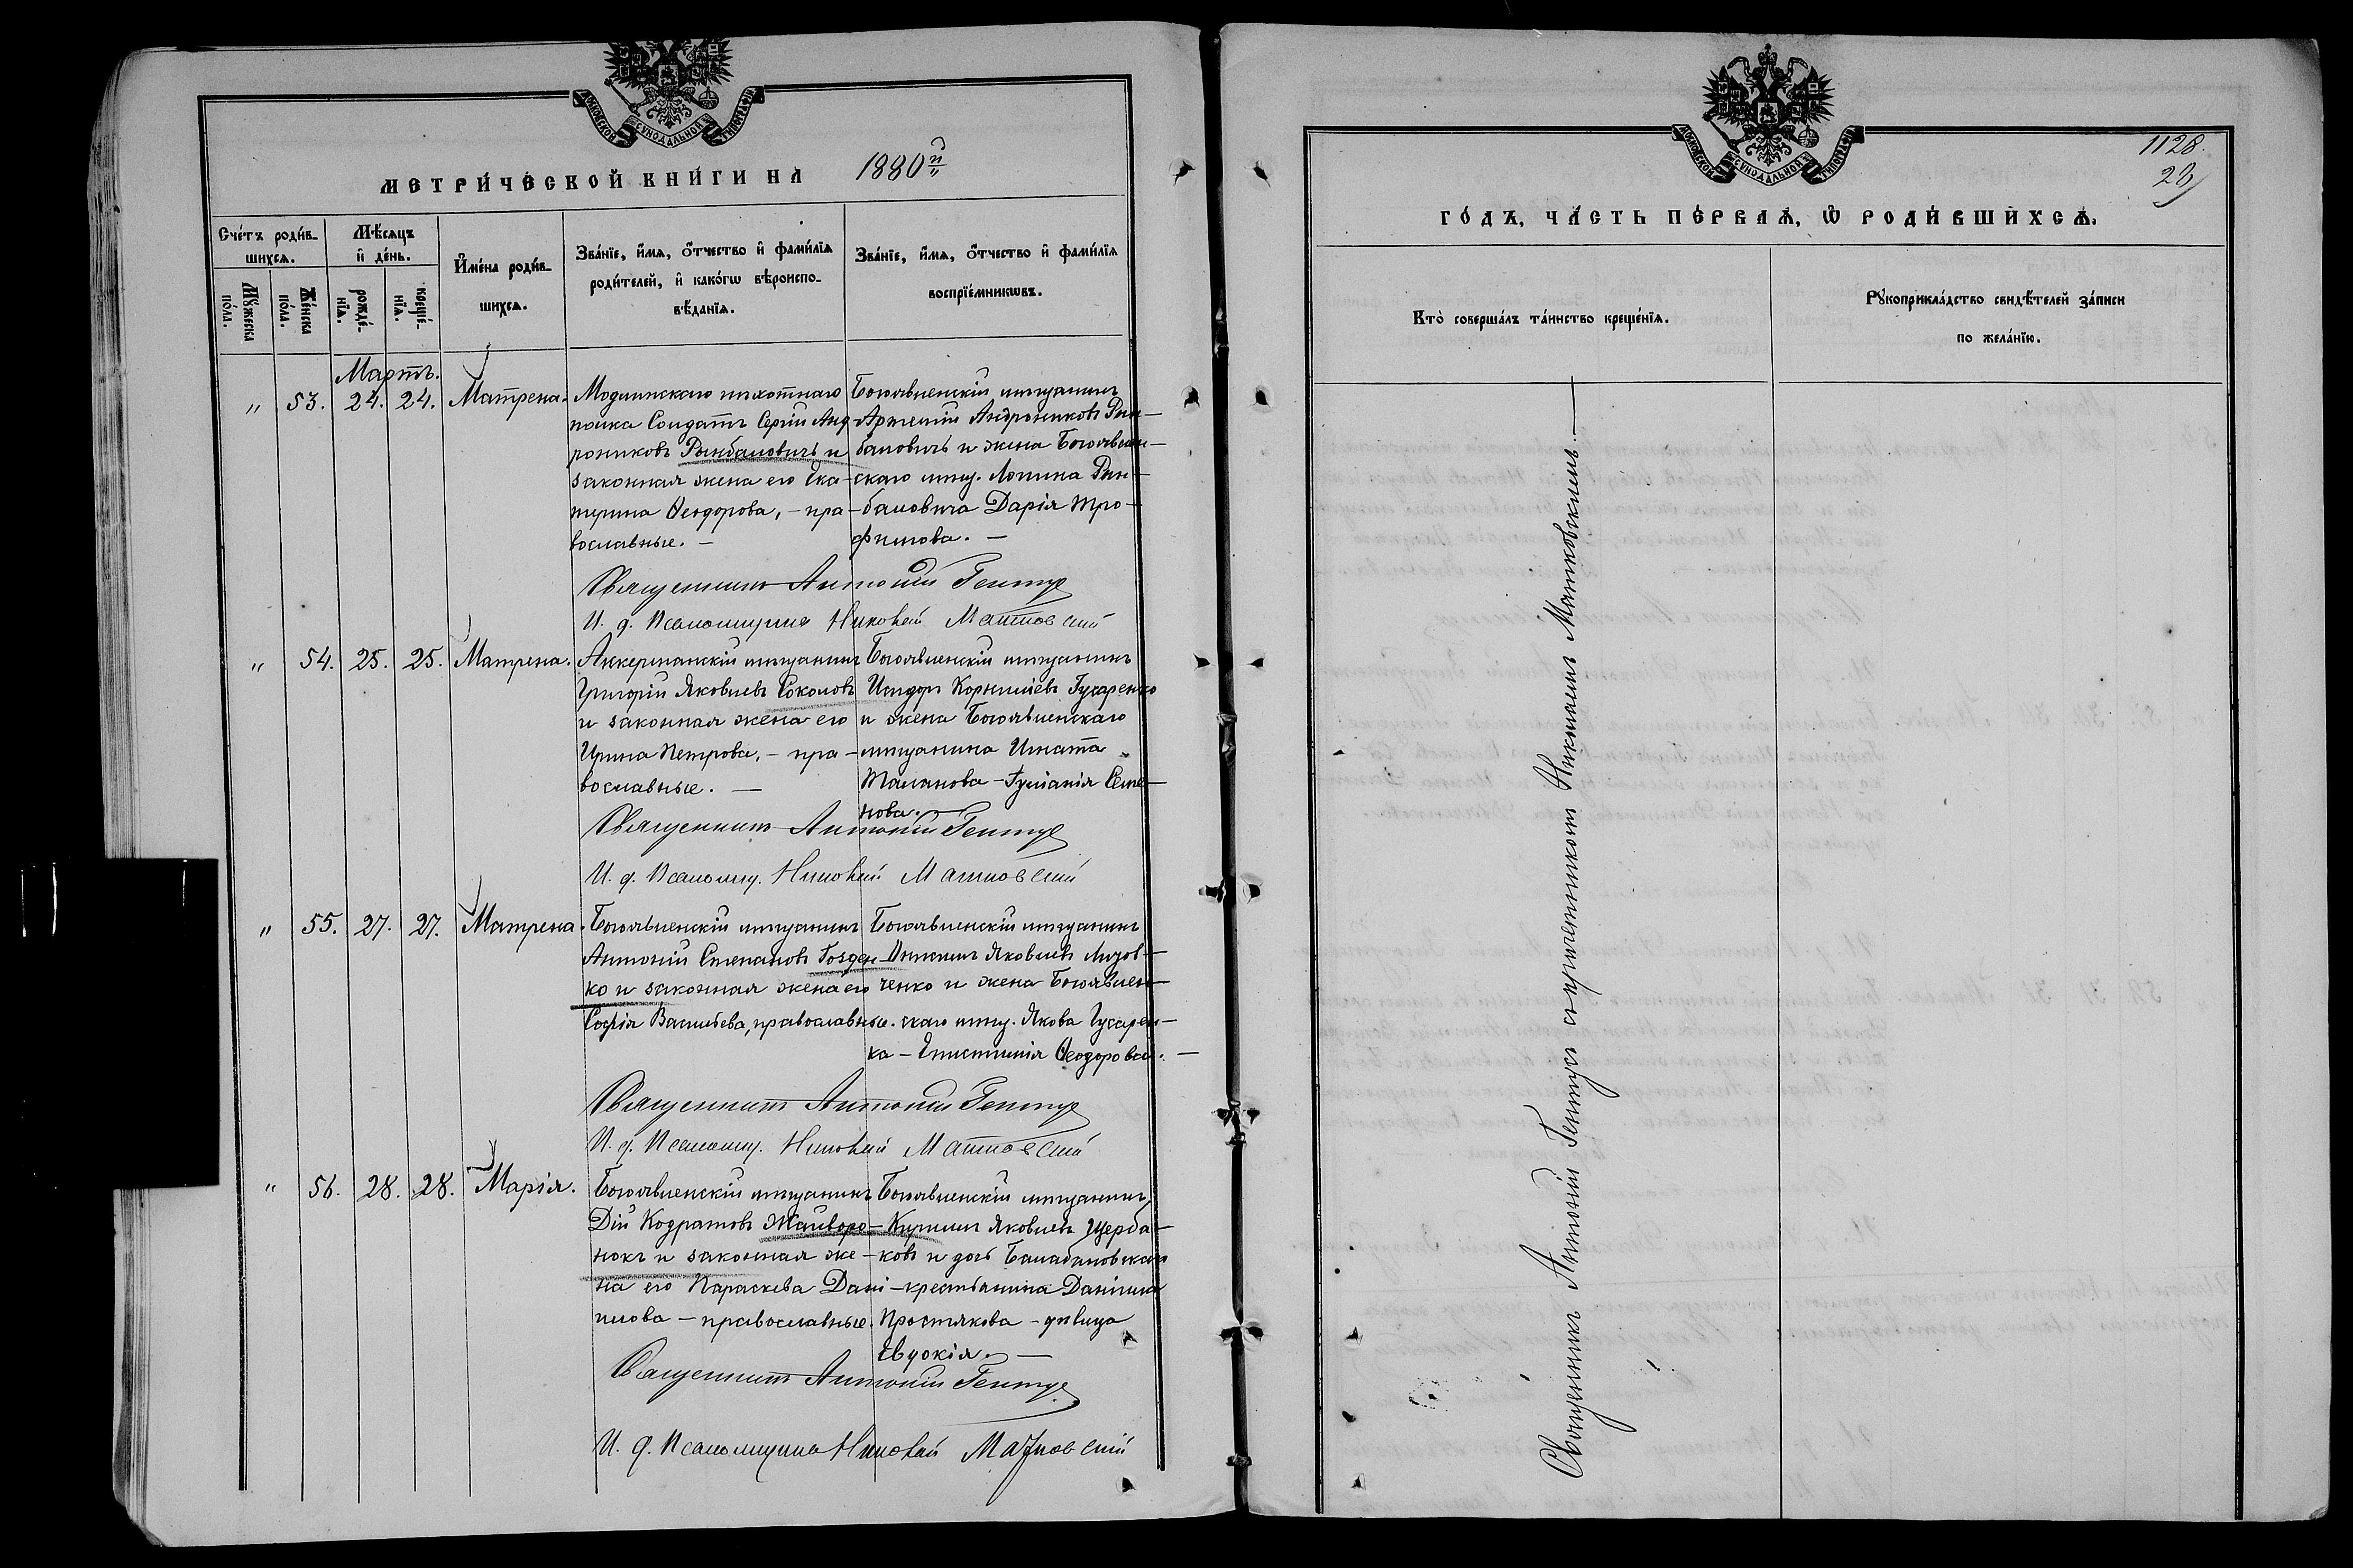 МОСКОВСКОЙ СѴНОДАЛЬНОЙ ТИПОГРАФІИ
МЕТРИ́ЧЕСКОЙ КНИ́ГИ НА 1880й
Сче́тъ роди́в-
шихсѧ.
Мѣ́сяцъ
и҆ де́нь.
И҆мена̀ роди́в-
шихсѧ.
Зва́нїе, и҆́мѧ, ѻ҆́тчество и҆ фами́лїѧ
роди́телей, и҆ како́гѡ вѣроиспо-
вѣ́данїѧ.
Зва́нїе, и҆́мѧ, ѻ҆́тчество и҆ фами́лїѧ
воспрїе́мникѡвъ.
Мꙋ́жеска по́ла.
Же́нска по́ла.
рожде́-нїѧ.
креще́-нїѧ.
Мартъ.
" 53. 24. 24. Матрена.
Модлинскаго пѣхотнаго
полка Солдатъ Сергій Анд
рониковъ Рынбаловичъ и
законная жена его Ека-
терина Ѳеодорова, – пра-
вославные. –
Богоявленскій мѣщанинъ
Артемій Андрониковъ Рын-
баловичъ и жена Богоявлен-
скаго мѣщ. Логина Рын-
баловича Дарія Тро-
фимова. –
Священникъ Антоній Гентус
И. д. Псаломщика Николай Матковскій
" 54. 25. 25. Матрена.
Аккерманскій мѣщанинъ
Григорій Яковлевъ Соколовъ
и законная жена его
Ирина Петрова, – пра-
вославные. –
Богоявленскій мѣщанинъ
Исидоръ Корниліевъ Гусаренко
и жена Богоявленскаго
мѣщанина Игната
Таланова – Іуліанія Семе-
нова. –
Священникъ Антоній Гентус
И. д. Псаломщ. Николай Матковскій
" 55. 27. 27. Матрена.
Богоявленскій мѣщанинъ
Антоній Степановъ Гозден-
ко и законная жена его
Софія Васильева, православные.
Богоявленскій мѣщанинъ
Онисимъ Яковлевъ
ченко и жена Богоявлен-
скаго мѣщ. Якова Гусарен-
ка – Епистимія Ѳеодорова. –
Священникъ Антоній Гентус
И. д. Псаломщ. Николай Матковскій
" 56. 28. 28. Марія.
Богоявленскій мѣщанинъ
Дій Кодратовъ Жаиворо-
нокъ и законная же-
на его Параскева Дані-
илова – православные.
Богоявленскій мѣщанинъ
Кириллъ Яковлевъ Щерба-
ковъ и дочь Балабановскаго
крестьянина Даніила
Простякова – дѣвица
Евдокія. –
Священникъ Антоній Гентус
И. д. Псаломщика Николай Матковскій
МОСКОВСКОЙ СѴНОДАЛЬНОЙ ТИПОГРАФІИ
1128.
28
ГО́ДЪ, ЧА́СТЬ ПЕ́РВАѦ, Ѡ҆ РОДИ́ВШИХСѦ.
Кто̀ соверша́лъ та́инство креще́нїѧ.
Рꙋкоприкла́дство свидѣ́телей за́писи
по жела́нїю.
Священникъ Антоній Гентусъ съ причетникомъ Николаемъ Матковскимъ. –